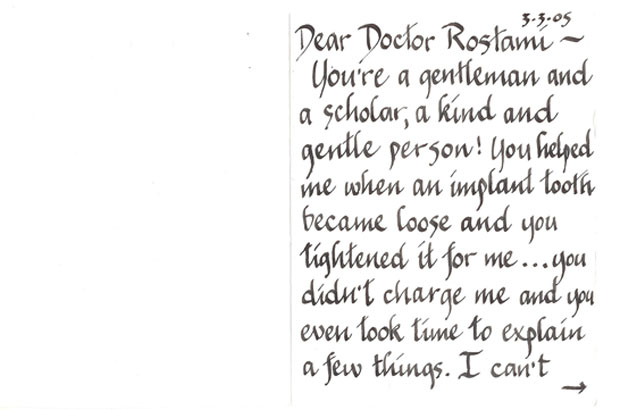 3-3-05
Dear Doctor Rostami ~
You're a gentleman and
a scholar, a kind and
gentle person! You helped
me when an implant tooth
became loose and you
tightened it for me...you
didn't charge me and you
even took time to explain
a few things. I can't
→